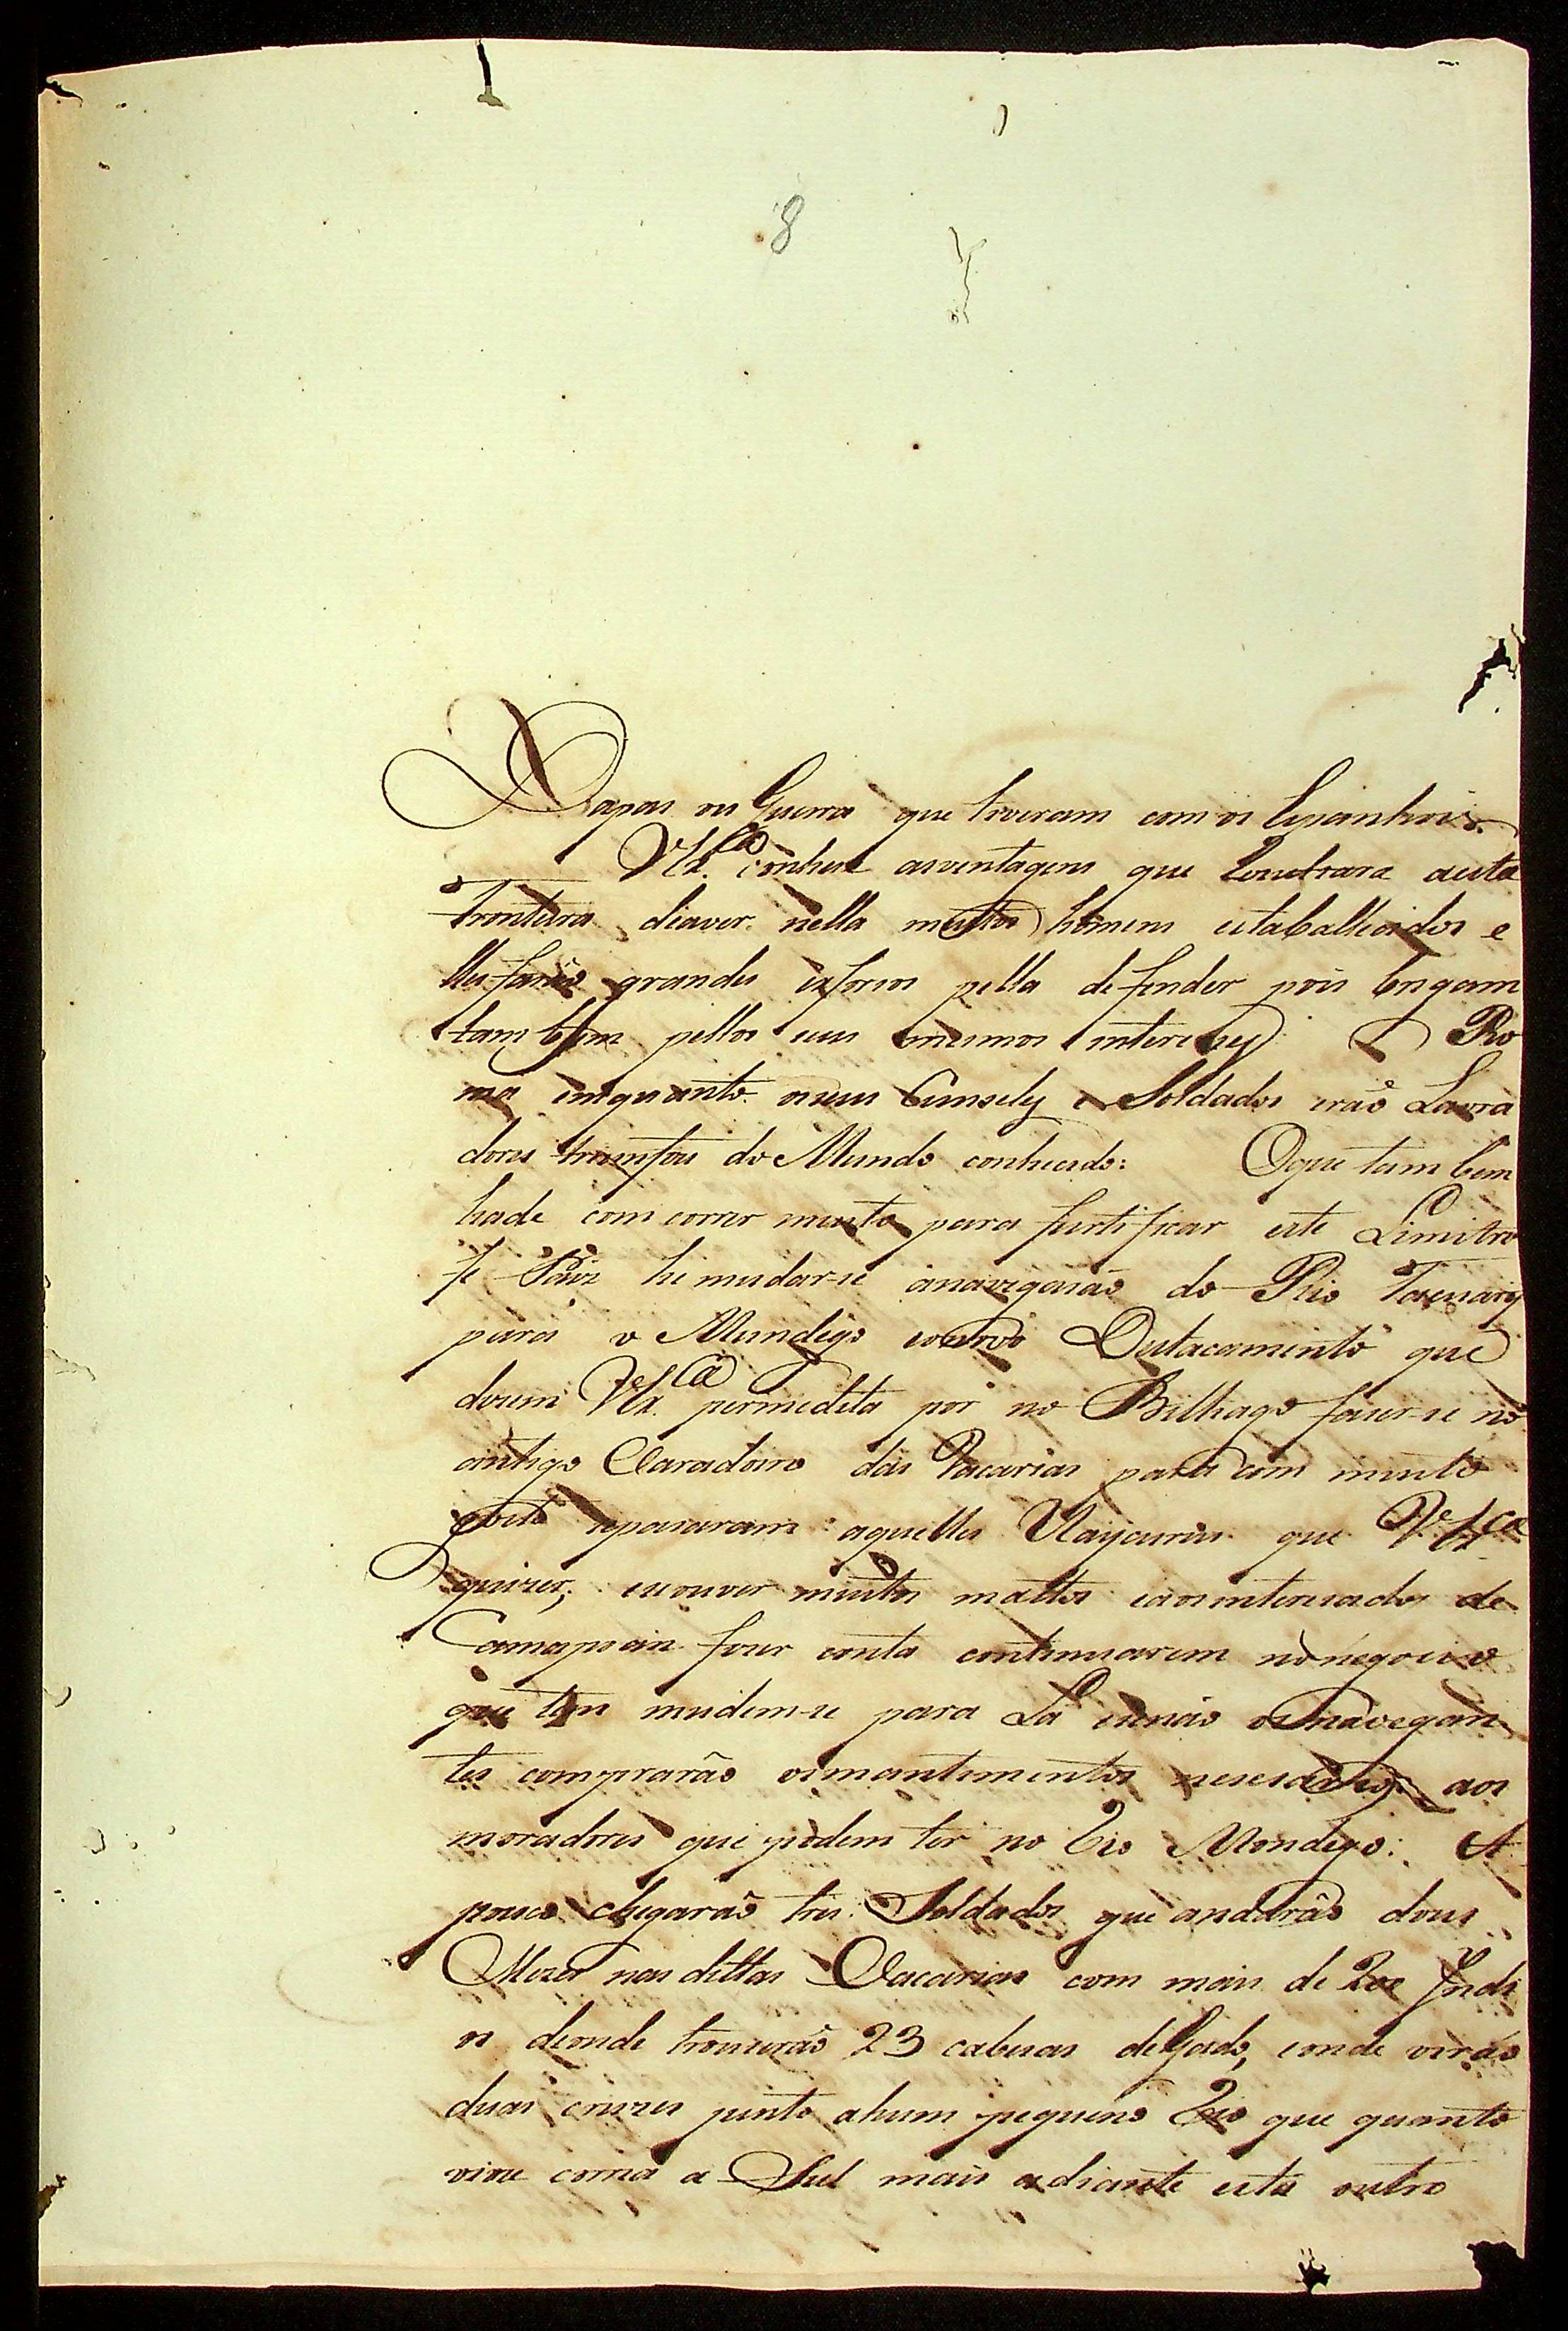 8
Dapas ou Guerra que tiveram com os Espanhois.
VEx.ca conhese asventagens que Rezultrara aesta
Fronteira diaver nella muitos homens estaballecidos e
lles farão grandes exforsos pella defender pois
tam bem pellos seus mesmos interesses: Ro
ma emquanto oseus Consely e Soldados erão Lavra
dores triumfou do Mundo conhecido: Oque tam bem
hade com correr muito para furtificar este Limitro
fe Páiz he mudar-se anavegasão do Rio Tacuary
para o Mondego eonovo Destacamento que
dizem VEx.ca permedita por no Bilhago fazer-se no
antigo Varadoiro das Vacarias para com muito
gosto separaram aquelles Uaycurus que VEx.ca
quizer, esenouver muitos mattos eaosinteresados de
Camapoan fizer conta continuarem nonegocio
que tem mudem-se para Lá esenão osnavegan
tes comprarão osmantimentos nesesarios aos
moradores que podem ter no Rio Mondego: A
pouco chegarão tres Soldados que andarão dous
Mezes nas dittas Vacarias com mais de 200 Indi
os donde trouxerão 23 cabesas deGado, eonde virão
duas cruzes junto ahum pequeno Rio que quanto
vive corria a Sul mais adiante esta outro